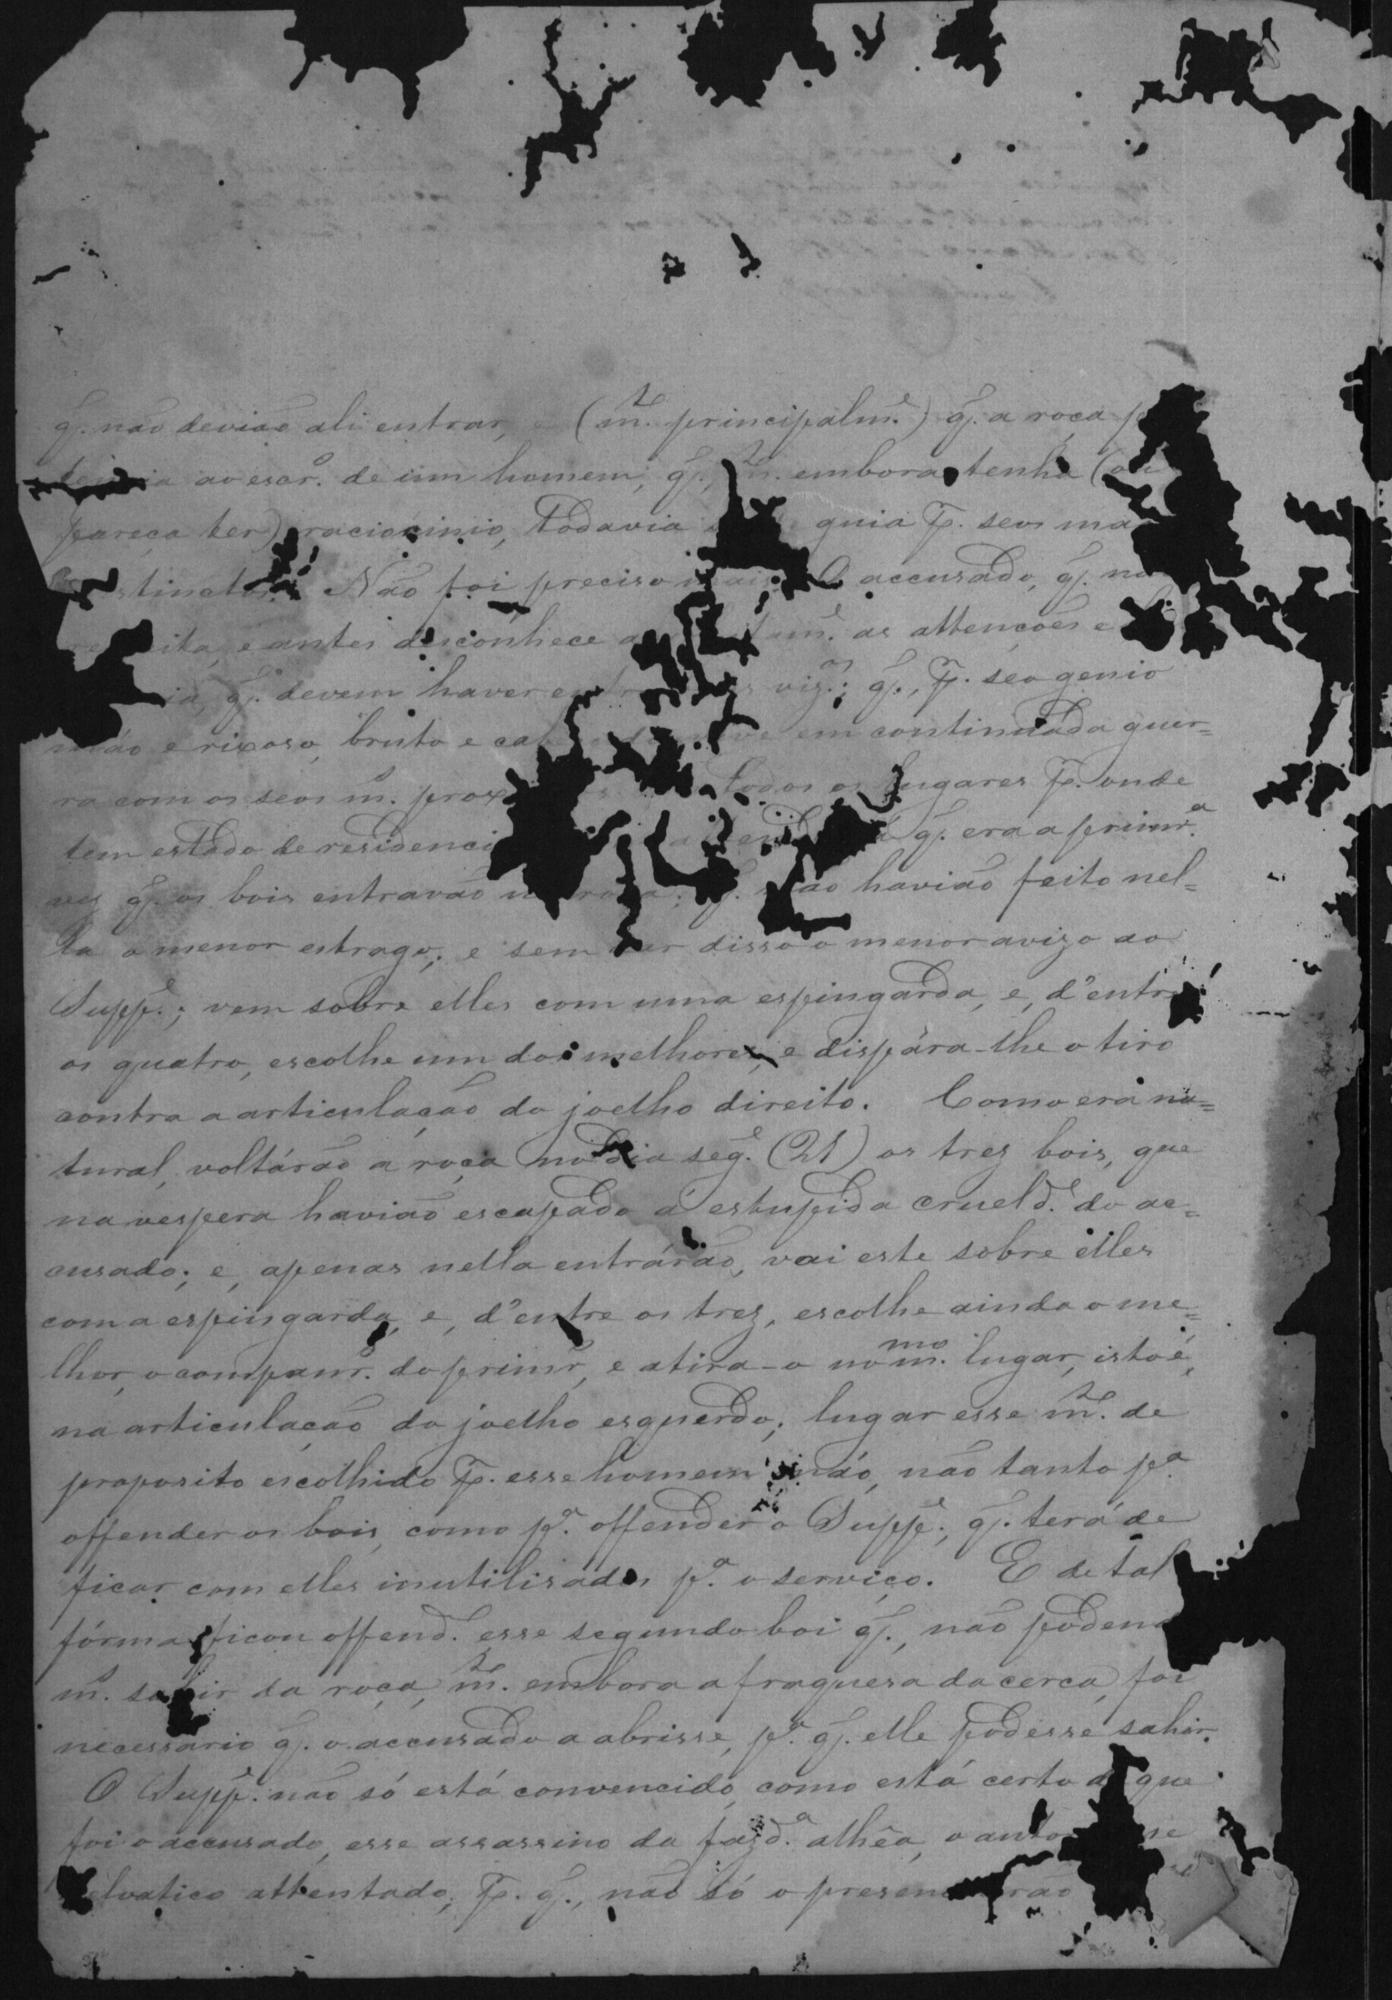 q. não devião ali entrar, (m. principalm.e) q. a roça
ao escr.o de um homem, q., m. embora tenha (ou
pareça ter) raciocinio, todavia guia p. seos
Não foi preciso mais. O accusado, q. não
e antes desconhece as attenções e
q. devem haver viz.os; q., p. seo genio
máo e rixoso, bruto e em continuada guer=
ra com os seos m. todos os lugares p. onde
tem estado de residencia q. era a primr.a
vez q. os bois entravão na roça; q. não havião feito nel=
la o menor estrago; e sem dar disso o menor avizo ao
Supp.e; vem sobre elles com uma espingarda, e, d'entre
os quatro, escolhe um dos melhores, e dispára-lhe o tiro
contra a articulação do joelho direito. Como era na=
tural, voltárão á roça no dia seg.e (21) os trez bois, que
na vespera havião escapado á estupida crueld.e do ac=
cusado; e, apenas nella entrárão, vai este sobre elles
com a espingarda, e, d'entre os trez, escolhe ainda o me=
lhor, o companr. do primr, e atira-o no m.mo lugar, isto é,
na articulação do joelho esquerdo; lugar esse m. de
proposito escolhido p. esse homem máo, não tanto p.a
offender os bois, como p.a offender o Supp.e; q. terá de
ficar com elles inutilisados p.a o serviço. E de tal
fórma ficou offend. esse segundo boi q., não podendo
m. sahir da roça, m. embora a fraquesa da cerca, foi
necessario q. o accusado a abrisse, p.a q. elle podesse sahir.
O Supp.e não só está convencido, como está certo de que
foi o accusado, esse assassino da fazd.a alhêa, o autor
selvatico attentado; p. q., não só o presenciárão